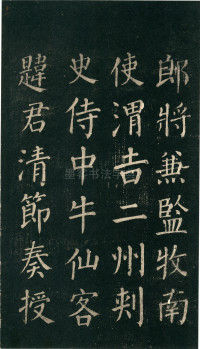 郎將兼監牧南
使渭吉二州刾
史侍中牛仙客
韙君清節奏授